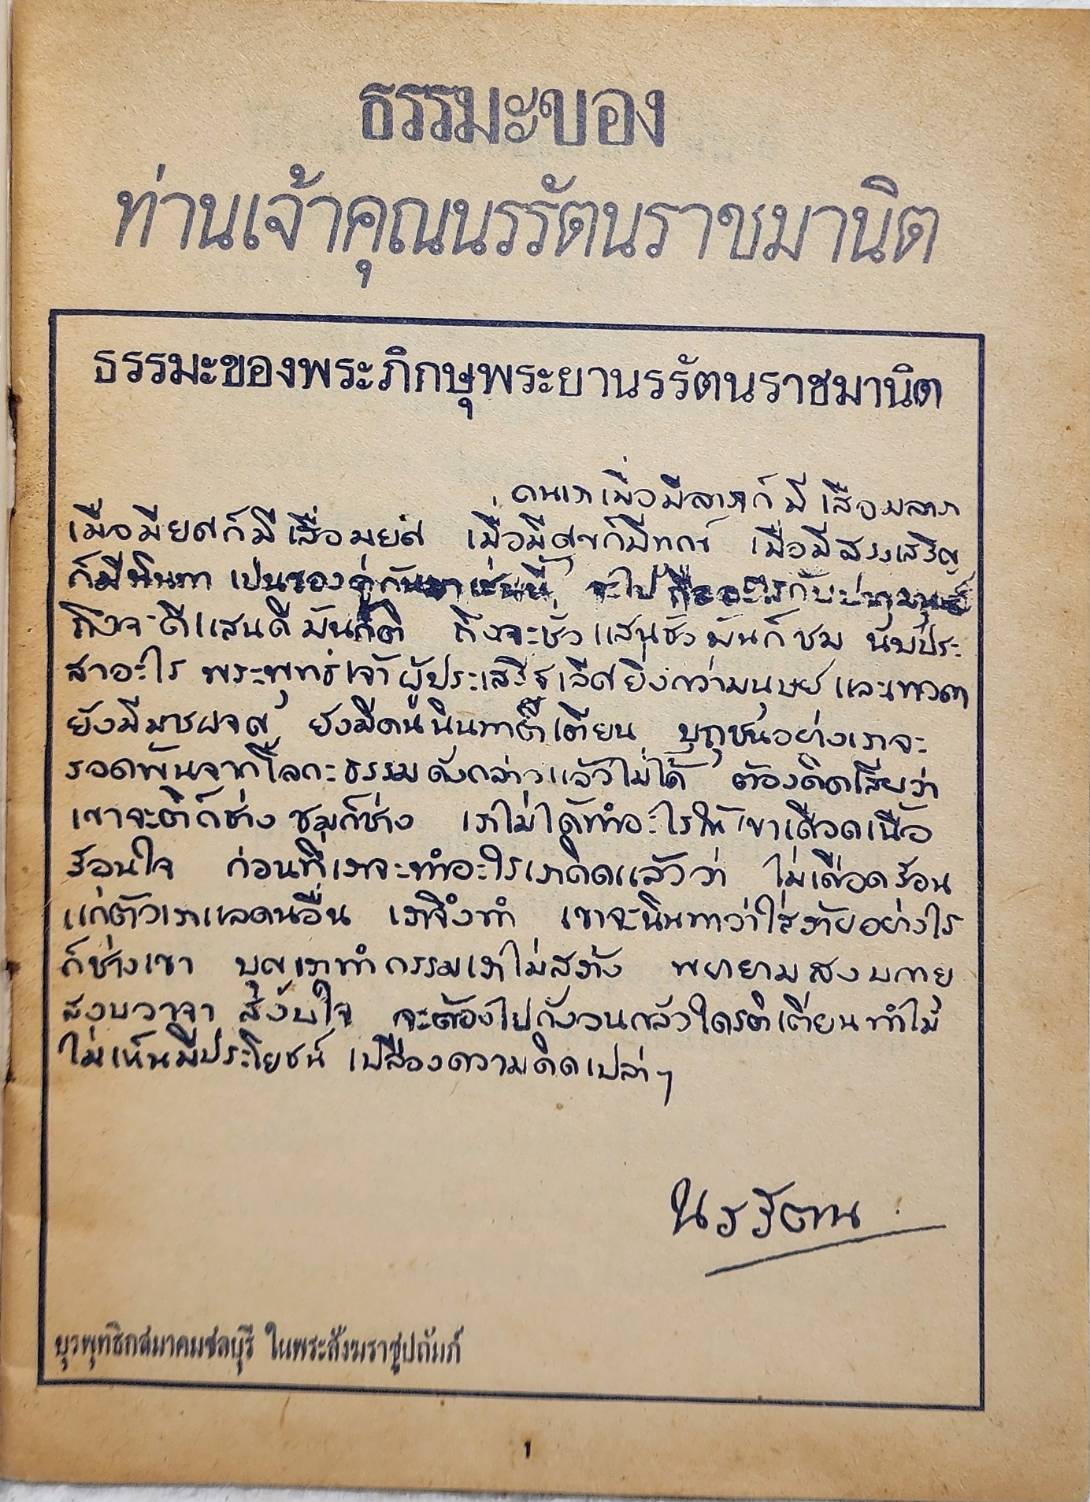 ธรรมะของ
ท่านเจ้าคุณนรรัตนราชมานิต
ธรรมะของพระภิกษุพระยานรรัตนราชมานิต
คนเราเมื่อมีลาภก็มีเสื่อมลาภ
เมื่อมียศก็มีเสื่อมยศ เมื่อมีสุขก็มีทุกข์ เมื่อมีสรรเสริญ
ก็มีนินทา เป็นของคู่กันมาเช่นนี้ จะไปถืออะไรกับปากมนุษย์
ถึงจะดีแสนดีมันก็ติ ถึงจะชั่วแสนชั่วมันก็ชม นับประ
สาอะไร พระพุทธเจ้าผู้ประเสริฐเลิศยิ่งกว่ามนุษย์และเทวดา
ยังมีมารผจญ ยังมีคนนินทาติเตียน ปุถุชนอย่างเราจะ
รอดพ้นจากโลกะธรรมดังกล่าวแล้วไม่ได้ ต้องคิดเสียว่า
เขาจะติก็ช่าง ชมก็ช่าง เราไม่ได้ทำอะไรให้เขาเดือดเนื้อ
ร้อนใจ ก่อนที่เราจะทำอะไรเราคิดแล้วว่า ไม่เดือดร้อน
แก่ตัวเราแลคนอื่น เราจึงทำ เขาจะนินทาว่าใส่ร้ายอย่างไร
ก็ช่างเขา บุญเราทำกรรมเราไม่สร้าง พยายามสงบกาย
สงบวาจา สงบใจ จะต้องไปกังวลกลัวใครติเตียนทำไม
ไม่เห็นมีประโยชน์ เปลืองความคิดเปล่าๆ
นรรัตน
ยุวพุทธิกสมาคมชลบุรี ในพระสังฆราชูปถัมภ์
1